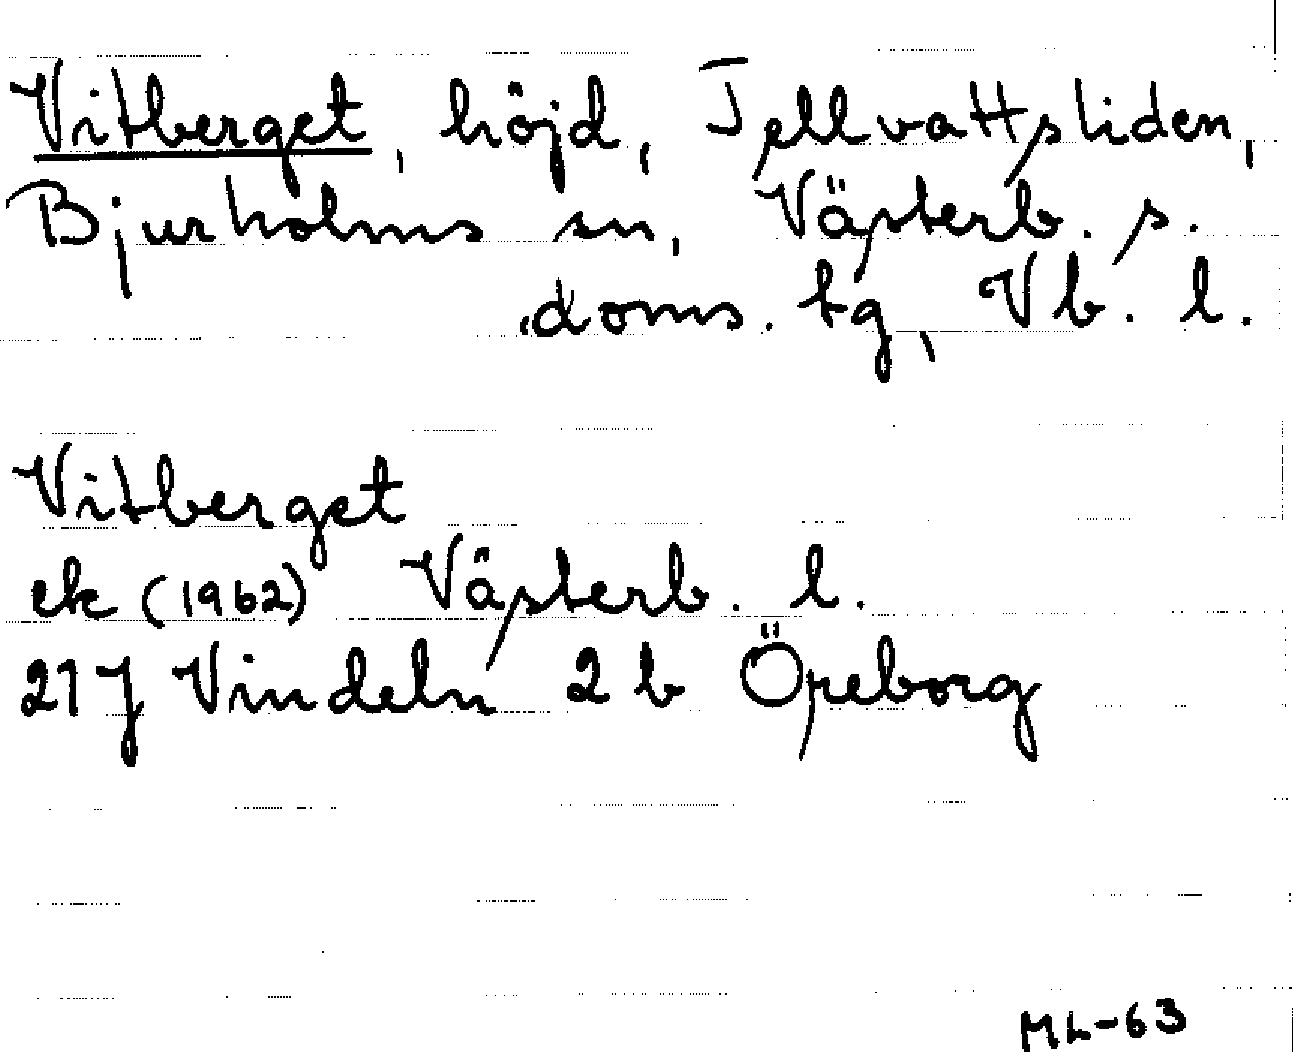 Vitberget, höjd, Jellvattsliden,
Bjurholms sn, Västerb. s.
doms. tg, Vb. l.
Vitberget
ek (1962) Västerb. l.
21J Vindeln 2b Öreborg
ML-63